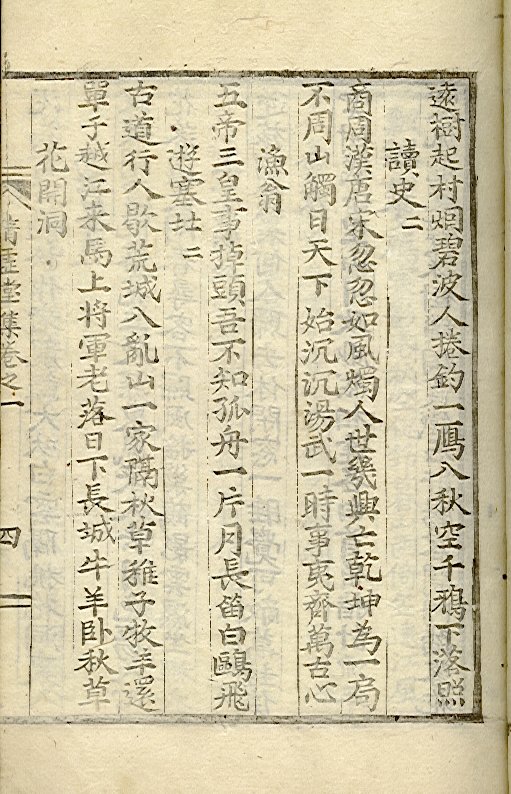 遠樹起村烟碧波人捲釣一鴈入秋空千鴉下落照
讀史二
商周漢唐宋忽忽如風燭人世幾興亡乾坤為一局
不周山觸日天下始沉沉湯武一時事夷齊萬古心
漁翁
五帝三皇事掉頭吾不知孤舟一片月長笛白鷗飛
遊塞北二
古道行人歇荒城入亂山一家隔秋草稚子牧羊還
單于越江来馬上将軍老落日下長城牛羊卧秋草
花開洞
清虛堂集卷之一 四